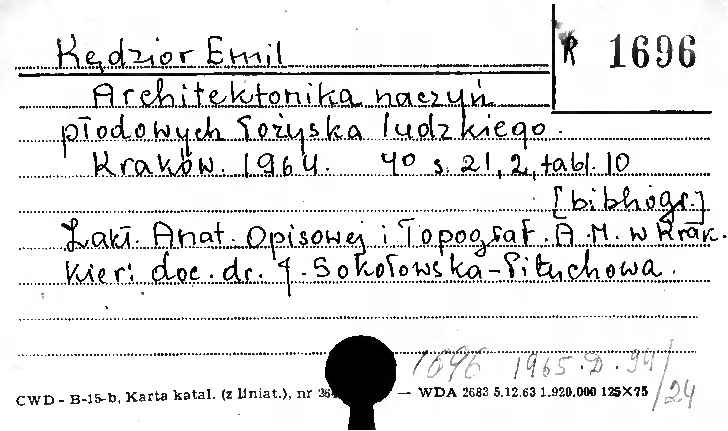 Kędzior Emil
R 1696
Architektonika naczyń
płodowych łożyska ludzkiego.
Kraków. 1964. 4° s. 21, 2, tabl. 10
[bibliogr.]
Zakł. Anat. Opisowej i Topograf. A.M. w Krak.
Kier: doc. dr. J. Sokołowska-Pituchowa.
1696 1965.D.94/24
CWD - B-15-b, Karta katal. (z liniat.), nr — WDA 2683 5.12.63 1.920.000 125×75